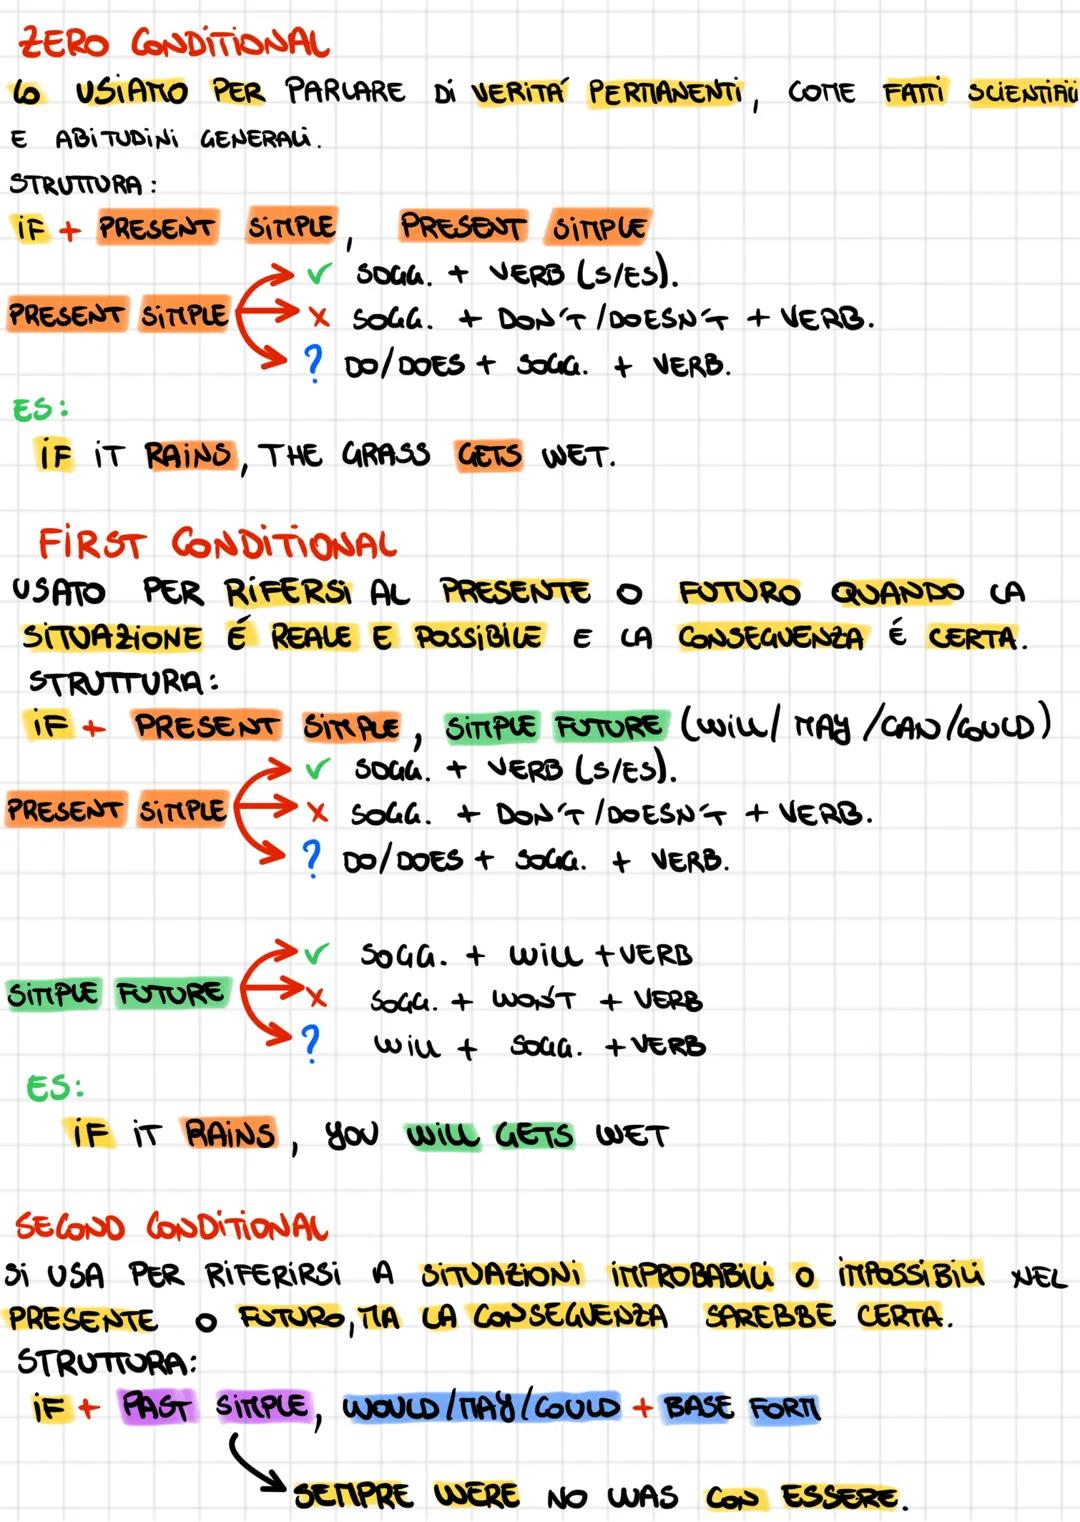 ZERO CONDITIONAL
LO USIAMO PER PARLARE Di VERITÁ PERMANENTI, COME FATTI SCIENTIFICI
E ABITUDINI GENERALI.
STRUTTURA:
IF + PRESENT SIMPLE, PRESENT SIMPLE
✓ SOGG. + VERB (S/ES).
PRESENT SIMPLE X SOGG. + DON'T / DOESN'T + VERB.
? DO/DOES + SOGG. + VERB.
ES:
IF IT RAINS, THE GRASS GETS WET.
FIRST CONDITIONAL
USATO PER RIFERSI AL PRESENTE O FUTURO QUANDO LA
SITUAZIONE É REALE E POSSIBILE E LA CONSEGUENZA É CERTA.
STRUTTURA:
IF + PRESENT SIMPLE, SIMPLE FUTURE (WILL/ MAY /CAN/COULD)
✓ SOGG. + VERB (S/ES).
PRESENT SIMPLE X SOGG. + DON'T / DOESN'T + VERB.
? DO/DOES + SOGG. + VERB.
✓ SOGG. + WILL + VERB
SIMPLE FUTURE X SOGG. + WON'T + VERB
? WILL + SOGG. + VERB
ES:
IF IT RAINS, YOU WILL GETS WET
SECOND CONDITIONAL
SI USA PER RIFERIRSI A SITUAZIONI IMPROBABILI O IMPOSSIBILI NEL
PRESENTE O FUTURO, MA LA CONSEGUENZA SAREBBE CERTA.
STRUTTURA:
IF + PAST SIMPLE, WOULD/MAY/COULD + BASE FORM
SEMPRE WERE NO WAS CON ESSERE.